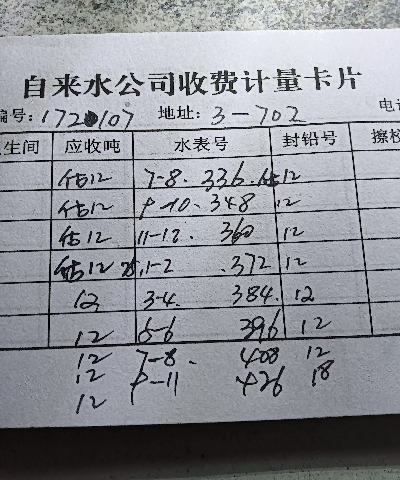 自来水公司收费计量卡片
编号: 1720107 地址: 3-702 电话
生间 应收吨 水表号 封铅号 擦校
估12 7-8. 336. 估12
估12 9-10. 348 12
估12 11-12. 360 12
估12 1-2 .372 12
12 3-4. 384. 12
12 5-6 396 12
12 7-8. 408 12
12 9-11 426 18
12